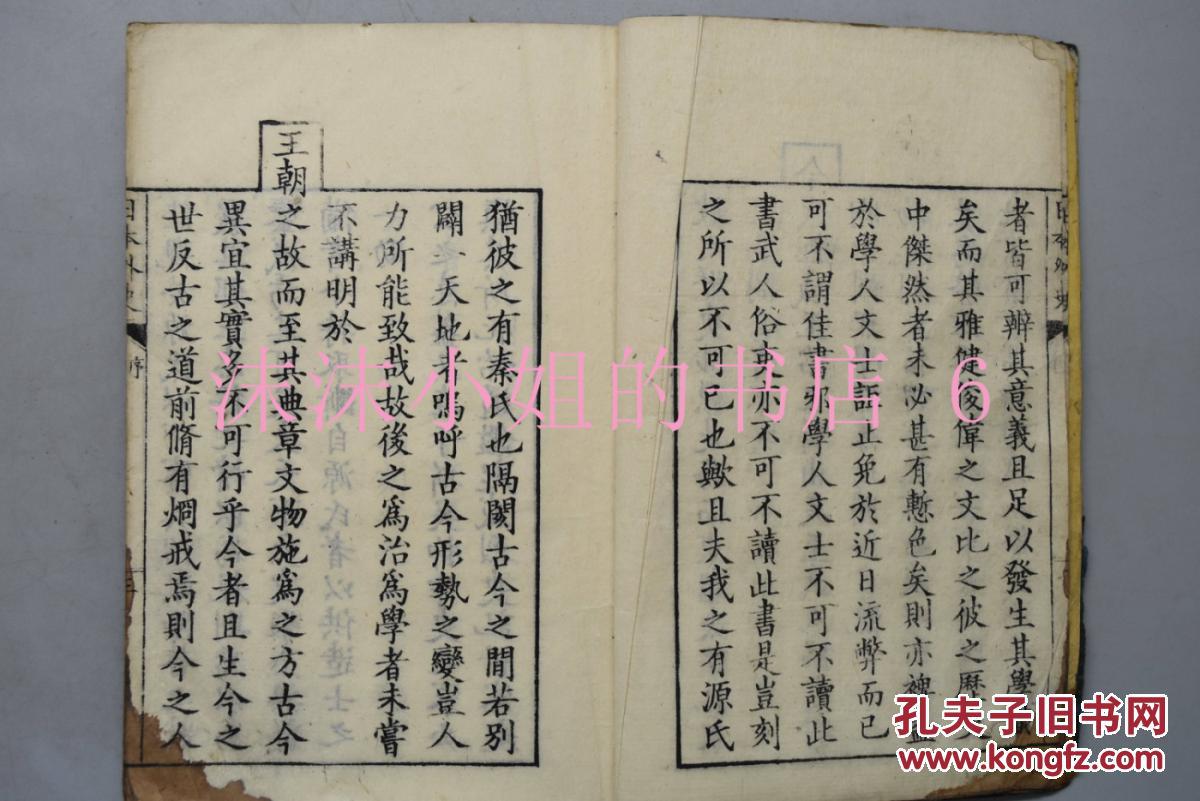 者皆可辨其意義且足以發生其學
矣而其雅健俊偉之文比之彼之歷
中傑然者未必甚有慙色矣則亦裨
於學人文士詎止免於近日流弊而已
可不謂佳書邪學人文士不可不讀此
書武人俗吏亦不可不讀此書是豈刻
之所以不可已也歟且夫我之有源氏
猶彼之有秦氏也隔閡古今之間若別
闢天地者嗚呼古今形勢之變豈人
力所能致哉故後之爲治爲學者未嘗
不講明於
王朝之故而至其典章文物施爲之方古今
異宜其實多不可行乎今者且生今之
世反古之道前脩有炯戒焉則今之人
日本外史
序
沫沫小姐的书店 6
孔夫子旧书网
www.kongfz.com